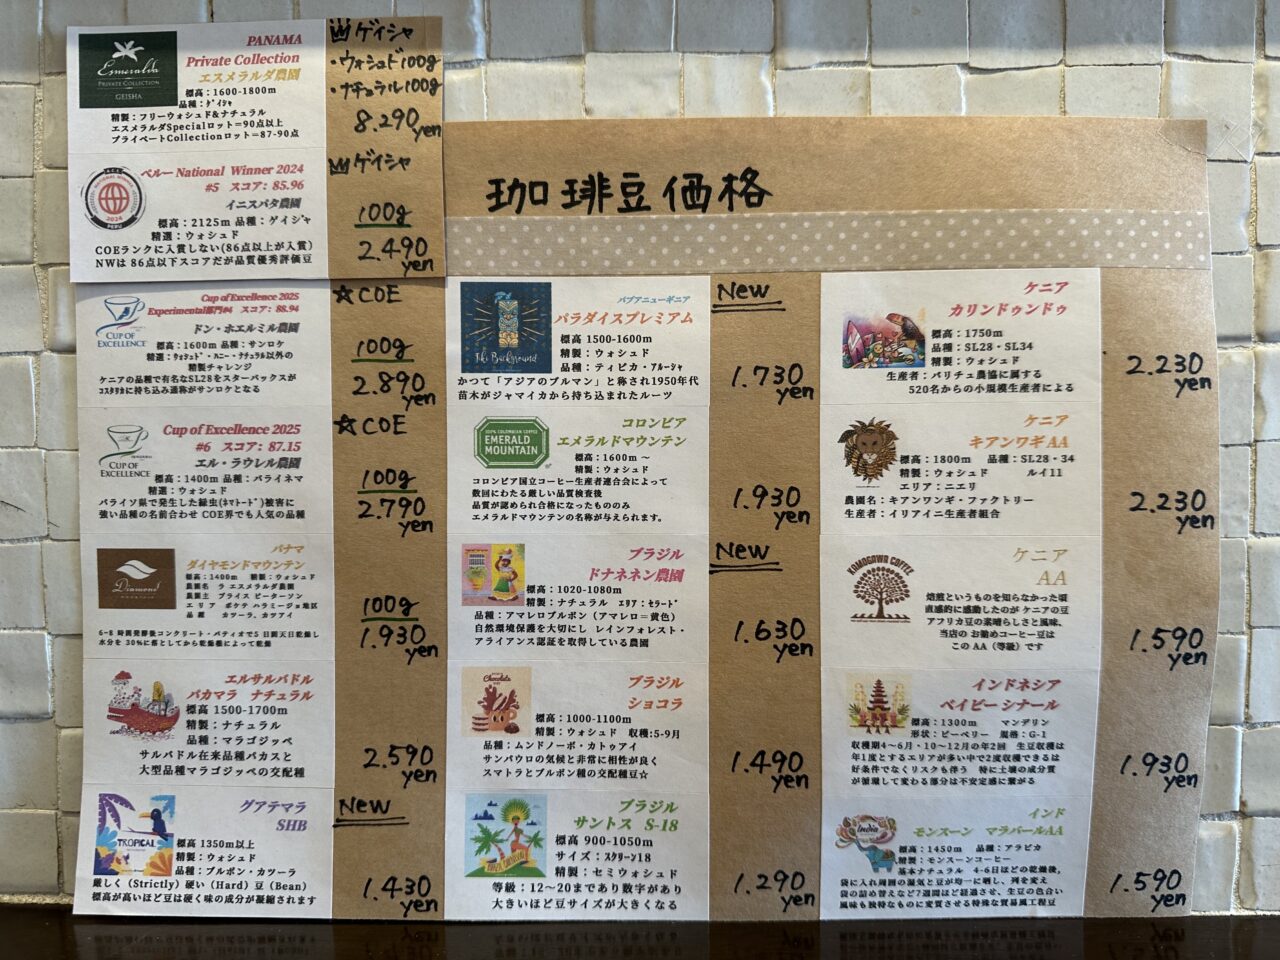 珈琲豆価格
Esmeralda
PRIVATE COLLECTION
GEISHA
PANAMA
Private Collection
エスメラルダ農園
標高：1600-1800m
品種：ゲイシャ
精製：フリーウォシュド&ナチュラル
エスメラルダSpecialロット＝90点以上
プライベートCollectionロット＝87-90点
ゲイシャ
・ウォシュド100g
・ナチュラル100g
8.290
yen
NATIONAL WINNER
2024
PERU
ペルー National Winner 2024
#5 スコア：85.96
イニスパタ農園
標高：2125m 品種：ゲイジャ
精選：ウォシュド
COEランクに入賞しない(86点以上が入賞)
NWは 86点以下スコアだが品質優秀評価豆
ゲイシャ
100g
2.490
yen
CUP OF
EXCELLENCE
Cup of Excellence 2025
Experimental部門#4 スコア：88.94
ドン・ホエルミル農園
標高：1600m 品種：サンロケ
精選：ウォシュド・ハニー・ナチュラル以外の
精製チャレンジ
ケニアの品種で有名なSL28をスターバックスが
コスタリカに持ち込み通称がサンロケとなる
☆COE
100g
2.890
yen
CUP OF
EXCELLENCE
Cup of Excellence 2025
#6 スコア：87.15
エル・ラウレル農園
標高：1400m 品種：パライネマ
精選：ウォシュド
パライソ県で発生した線虫(ネマトード)被害に
強い品種の名前合わせ COE界でも人気の品種
☆COE
100g
2.790
yen
Diamond
MOUNTAIN
パナマ
ダイヤモンドマウンテン
標高：1400m 精製：ウォシュド
農園名 ラ エスメラルダ農園
農園主 プライス ピーターソン
エリア ボケテ ハラミージョ地区
品種 カツーラ、カツアイ
6-8 時間発酵後コンクリート・パティオで5 日間天日乾燥し
水分を 30%に落としてから乾燥機によって乾燥
100g
1.930
yen
エルサルバドル
パカマラ ナチュラル
標高：1500-1700m
精製：ナチュラル
品種：マラゴジッペ
サルバドル在来品種パカスと
大型品種マラゴジッペの交配種
2.590
yen
TROPICAL
グアテマラ
SHB
標高 1350m以上
精製：ウォシュド
品種：ブルボン・カツーラ
厳しく（Strictly）硬い（Hard）豆（Bean）
標高が高いほど豆は硬く味の成分が凝縮されます
New
1.430
yen
Tiki Background
パプアニューギニア
パラダイスプレミアム
標高 1500-1600m
精製：ウォシュド
品種：ティピカ・アルーシャ
かつて「アジアのブルマン」と称され1950年代
苗木がジャマイカから持ち込まれたルーツ
New
1.730
yen
100% COLOMBIAN COFFEE
EMERALD
MOUNTAIN
コロンビア
エメラルドマウンテン
標高：1600m ～
精製：ウォシュド
コロンビア国立コーヒー生産者連合会によって
数回にわたる厳しい品質検査後
品質が認められ合格になったもののみ
エメラルドマウンテンの名称が与えられます。
1.930
yen
ブラジル
ドナネネン農園
標高：1020-1080m
精製：ナチュラル エリア：セラード
品種：アマレロブルボン（アマレロ＝黄色）
自然環境保護を大切にし レインフォレスト・
アライアンス認証を取得している農園
New
1.630
yen
Chocolate
ブラジル
ショコラ
標高：1000-1100m
精製：ウォシュド 収穫:5-9月
品種：ムンドノーボ・カトゥアイ
サンパウロの気候と非常に相性が良く
スマトラとブルボン種の交配種豆☆
1.490
yen
ブラジル
サントス S-18
標高 900-1050m
サイズ：スクリーン18
精製：セミウォシュド
等級：12～20まであり数字があり
大きいほど豆サイズが大きくなる
1.290
yen
ケニア
カリンドゥンドゥ
標高：1750m
品種：SL28・SL34
精製：ウォシュド
生産者：バリチュ農協に属する
520名からの小規模生産者による
2.230
yen
ケニア
キアンワギAA
標高：1800m 品種：SL28・34
精製：ウォシュド ルイ11
エリア：ニエリ
農園名：キアンワンギ・ファクトリー
生産者：イリアイニ生産者組合
2.230
yen
KAMOGAWA COFFEE
ケニア
AA
焙煎というものを知らなかった頃
直感的に感動したのが ケニアの豆
アフリカ豆の素晴らしさと風味、
当店の お勧めコーヒー豆は
この AA（等級）です
1.590
yen
インドネシア
ベイビーシナール
標高：1300m マンデリン
形状：ピーベリー 規格：G-1
収穫期4～6月・10～12月の年2回 生豆収穫は
年1度とするエリアが多い中で2度収穫できるは
好条件でなくリスクも伴う 特に土壌の成分質
が循環して変わる部分は不安定感に繋がる
1.930
yen
India
インド
モンスーン マラバールAA
標高：1450m 品種：アラビカ
精製：モンスーンコーヒー
基本ナチュラル 4-6日ほどの乾燥後、
袋に入れ周囲の湿気と豆が均一に晒し、列を変え
袋の詰め替えなど7週間ほど経過させ、生豆の色合い
風味も独特なものに変質させる特殊な貿易風工程豆
1.590
yen